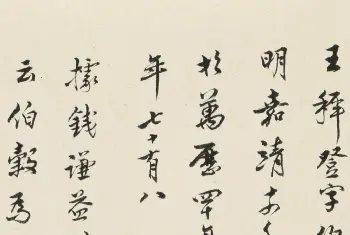 王穉登字伯
明嘉靖十
於萬歷四十年
年七十有八
據錢謙益
云伯穀爲